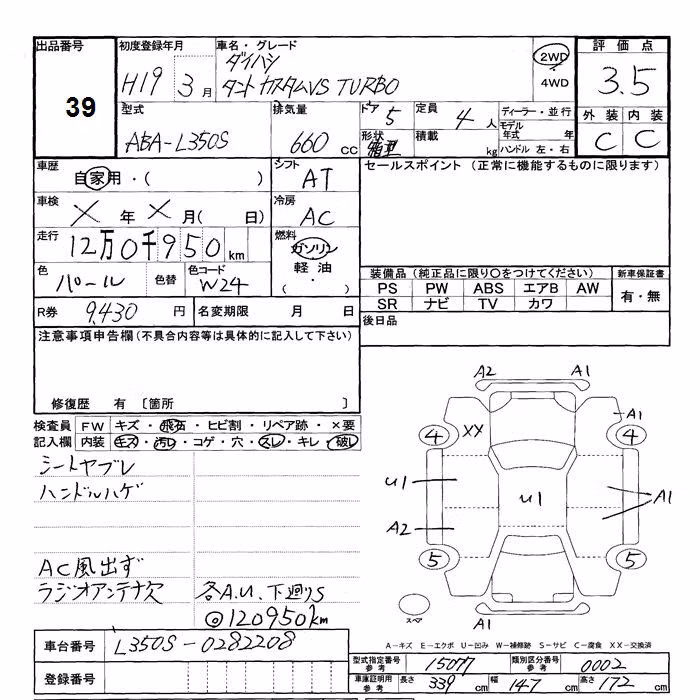 出品番号 初度登録年月 車名・グレード 評価点
39 H19 3月 ダイハツ 2WD 3.5
タントカスタムVS TURBO 4WD
型式 排気量 ドア 5 定員 4人 ディーラー・並行 外装 内装
ABA-L350S 660cc 形状 箱型 積載 kg モデル年式 年 C C
ハンドル 左・右
車歴 自家用・( ) シフト AT セールスポイント(正常に機能するものに限ります)
車検 X年X月( 日) 冷房 AC
走行 12万0千950km 燃料 ガソリン
軽油
・( )
色 パール 色替 色コード W24 装備品(純正品に限り○をつけてください) 新車保証書
PS PW ABS エアB AW 有・無
R券 9,430円 名変期限 月 日 SR ナビ TV カワ
注意事項申告欄(不具合内容等は具体的に記入して下さい) 後日品
修復歴 有〔箇所 〕
検査員 FW キズ・飛石・ヒビ割・リペア跡・×要
記入欄 内装 キズ・汚レ・コゲ・穴・スレ・キレ・破レ
シートヤブレ
ハンドルハゲ
AC風出ず
ラジオアンテナ欠 各A.U、下廻りS
◎120950km
A2 A1
A1
4 XX 4
U1 U1 A1
A2
5 5
スペア A1
車台番号 L350S-0282208
A-キズ E-エクボ U-凹み W-補修跡 S-サビ C-腐食 XX-交換済
登録番号
型式指定番号 参考 15077 類別区分番号 参考 0002
車庫証明用 参考 長さ 339cm 幅 147cm 高さ 172cm